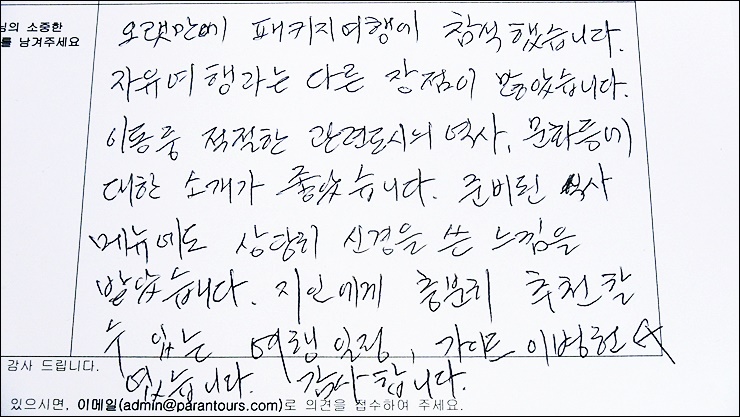 님의 소중한
를 남겨주세요
오랫만에 패키지여행에 참석했습니다.
자유여행과는 다른 장점이 많았습니다.
이동중 적절한 관련도시의 역사, 문화등에
대한 소개가 좋았습니다. 준비된 식사
메뉴에도 상당히 신경을 쓴 느낌을
받았습니다. 지인에게 충분히 추천할
수 있는 여행일정, 가이드 이병헌
였습니다. 감사합니다.
감사 드립니다.
있으시면, 이메일(admin@parantours.com)로 의견을 접수하여 주세요.